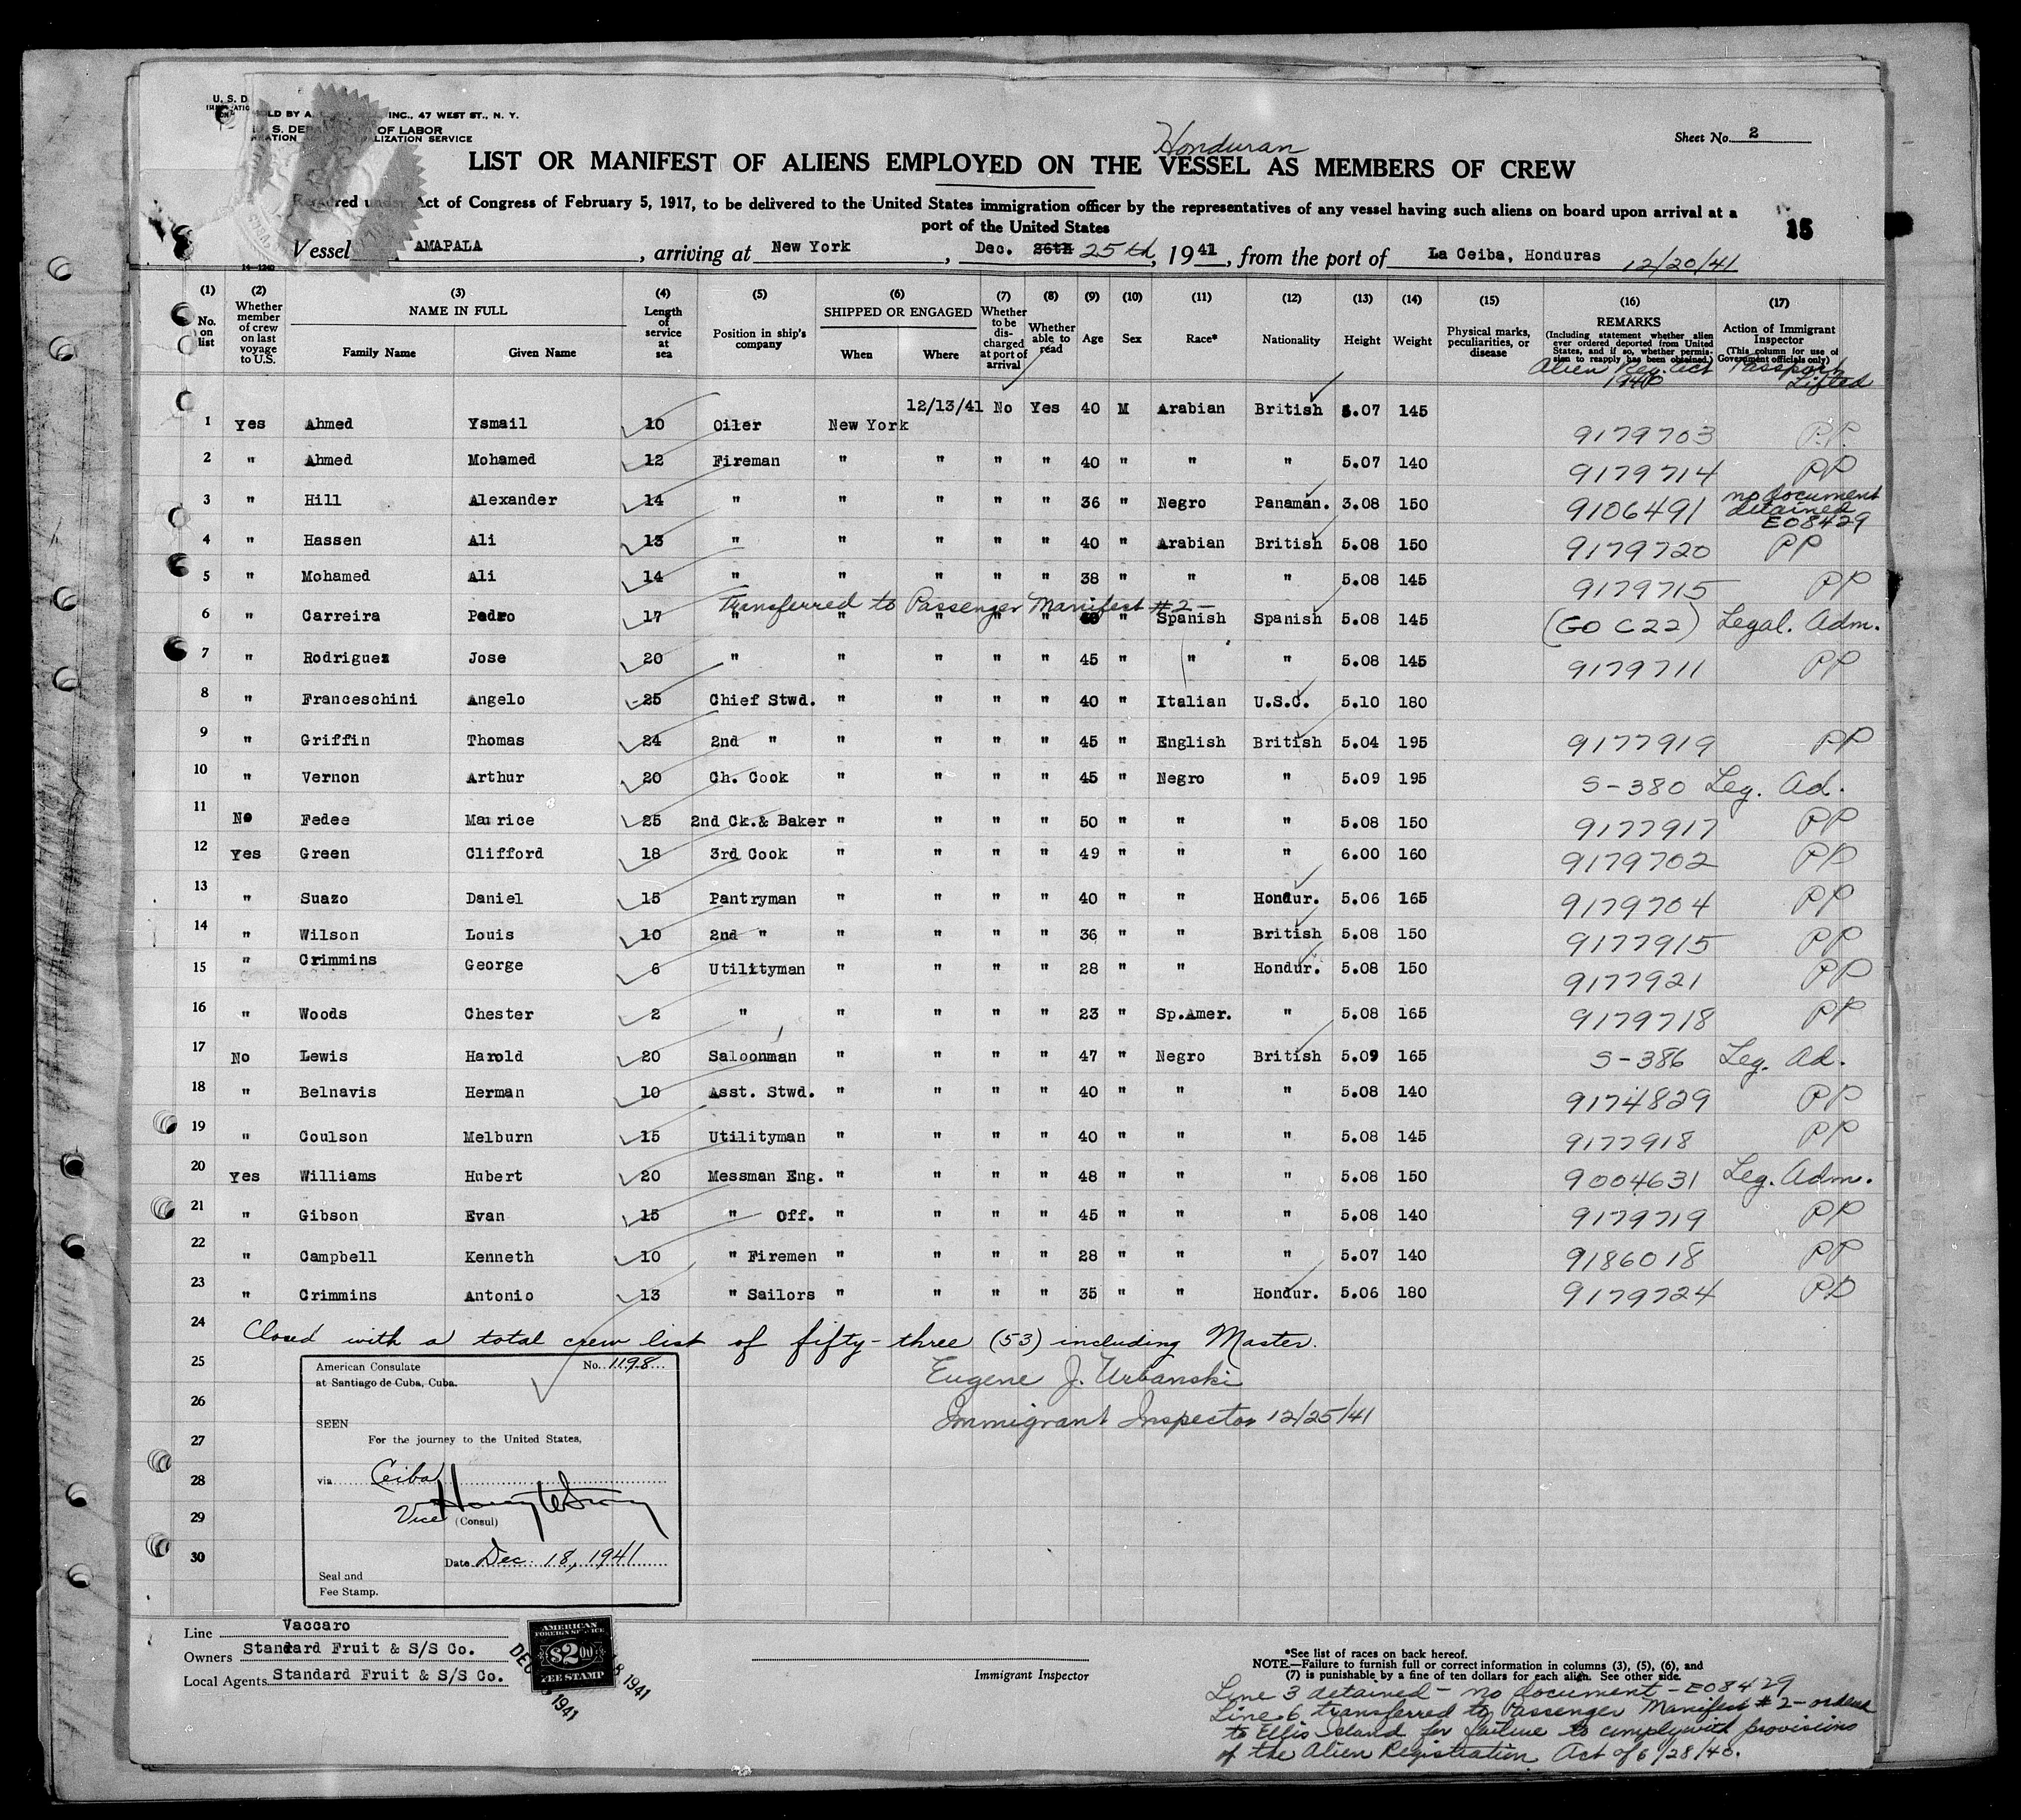 U. S. D
SOLD BY A. INC., 47 WEST ST., N. Y.
U. S. DEPARTMENT OF LABOR
IMMIGRATION NATURALIZATION SERVICE
Sheet No. 2
Honduran
LIST OR MANIFEST OF ALIENS EMPLOYED ON THE VESSEL AS MEMBERS OF CREW
Required under Act of Congress of February 5, 1917, to be delivered to the United States immigration officer by the representatives of any vessel having such aliens on board upon arrival at a
port of the United States
15
Vessel AMAPALA, arriving at New York, Dec. 26th 25th, 1941, from the port of La Ceiba, Honduras 12/20/41
14—1240
(1) (2) (3) (4) (5) (6) (7) (8) (9) (10) (11) (12) (13) (14) (15) (16) (17)
No. on list
Whether member of crew on last voyage to U.S.
NAME IN FULL
Family Name
Given Name
Length of service at sea
Position in ship's company
SHIPPED OR ENGAGED
When
Where
Whether to be discharged at port of arrival
Whether able to read
Age
Sex
Race*
Nationality
Height
Weight
Physical marks, peculiarities, or disease
REMARKS
(Including statement whether alien ever ordered deported from United States, and if so, whether permission to reapply has been obtained.)
Alien Reg. Act 1940
Action of Immigrant Inspector
(This column for use of Government officials only)
Passport Lifted
1 Yes Ahmed Ysmail 10 Oiler New York 12/13/41 No Yes 40 M Arabian British 5.07 145 9179703 P.P.
2 " Ahmed Mohamed 12 Fireman " " " " 40 " " " 5.07 140 9179714 PP
3 " Hill Alexander 14 " " " " " 36 " Negro Panaman. 3.08 150 9106491 no document detained E08429
4 " Hassen Ali 13 " " " " " 40 " Arabian British 5.08 150 9179720 PP
5 " Mohamed Ali 14 " " " " " 38 " " " 5.08 145 9179715 PP
Transferred to Passenger Manifest #2 —
6 " Carreira Pedro 17 " " " " " " Spanish Spanish 5.08 145 (GO C22) Legal. Adm.
7 " Rodriguez Jose 20 " " " " " 45 " " " 5.08 145 9179711 PP
8 " Franceschini Angelo 25 Chief Stwd. " " " " 40 " Italian U.S.C. 5.10 180
9 " Griffin Thomas 24 2nd " " " " " 45 " English British 5.04 195 9177919 PP
10 " Vernon Arthur 20 Ch. Cook " " " " 45 " Negro " 5.09 195 S-380 Leg. Ad.
11 No Fedee Maurice 25 2nd Ck.& Baker " " " " 50 " " " 5.08 150 9177917 PP
12 Yes Green Clifford 18 3rd Cook " " " " 49 " " " 6.00 160 9179702 PP
13 " Suazo Daniel 15 Pantryman " " " " 40 " " Hondur. 5.06 165 9179704 PP
14 " Wilson Louis 10 2nd " " " " " 36 " " British 5.08 150 9177915 PP
15 " Crimmins George 6 Utilityman " " " " 28 " " Hondur. 5.08 150 9177921 PP
16 " Woods Chester 2 " " " " " 23 " Sp.Amer. " 5.08 165 9179718 PP
17 No Lewis Harold 20 Saloonman " " " " 47 " Negro British 5.09 165 S-386 Leg. Ad.
18 " Belnavis Herman 10 Asst. Stwd. " " " " 40 " " " 5.08 140 9174829 PP
19 " Coulson Melburn 15 Utilityman " " " " 40 " " " 5.08 145 9177918 PP
20 Yes Williams Hubert 20 Messman Eng. " " " " 48 " " " 5.08 150 9004631 Leg. Adm.
21 " Gibson Evan 15 " Off. " " " " 45 " " " 5.08 140 9179719 PP
22 " Campbell Kenneth 10 " Firemen " " " " 28 " " " 5.07 140 9186018 PP
23 " Crimmins Antonio 13 " Sailors " " " " 35 " " Hondur. 5.06 180 9179724 PP
24 Closed with a total crew list of fifty-three (53) including Master.
25 Eugene J. Urbanski
26 Immigrant Inspector 12/25/41
27
28
29
30
American Consulate No. 1198
at Santiago de Cuba, Cuba.
SEEN
For the journey to the United States,
via Ceiba
Vice (Consul)
Date Dec. 18, 1941
Seal and
Fee Stamp.
Line Vaccaro
Owners Standard Fruit & S/S Co.
Local Agents Standard Fruit & S/S Co.
AMERICAN
FOREIGN SERVICE
$2.00
FEE STAMP
DEC 18 1941
Immigrant Inspector
*See list of races on back hereof.
NOTE—Failure to furnish full or correct information in columns (3), (5), (6), and
(7) is punishable by a fine of ten dollars for each alien. See other side.
Line 3 detained — no document — E08429
Line 6 transferred to Passenger Manifest #2 — ordered
to Ellis Island for failure to comply with provisions
of the Alien Registration Act of 6/28/40.